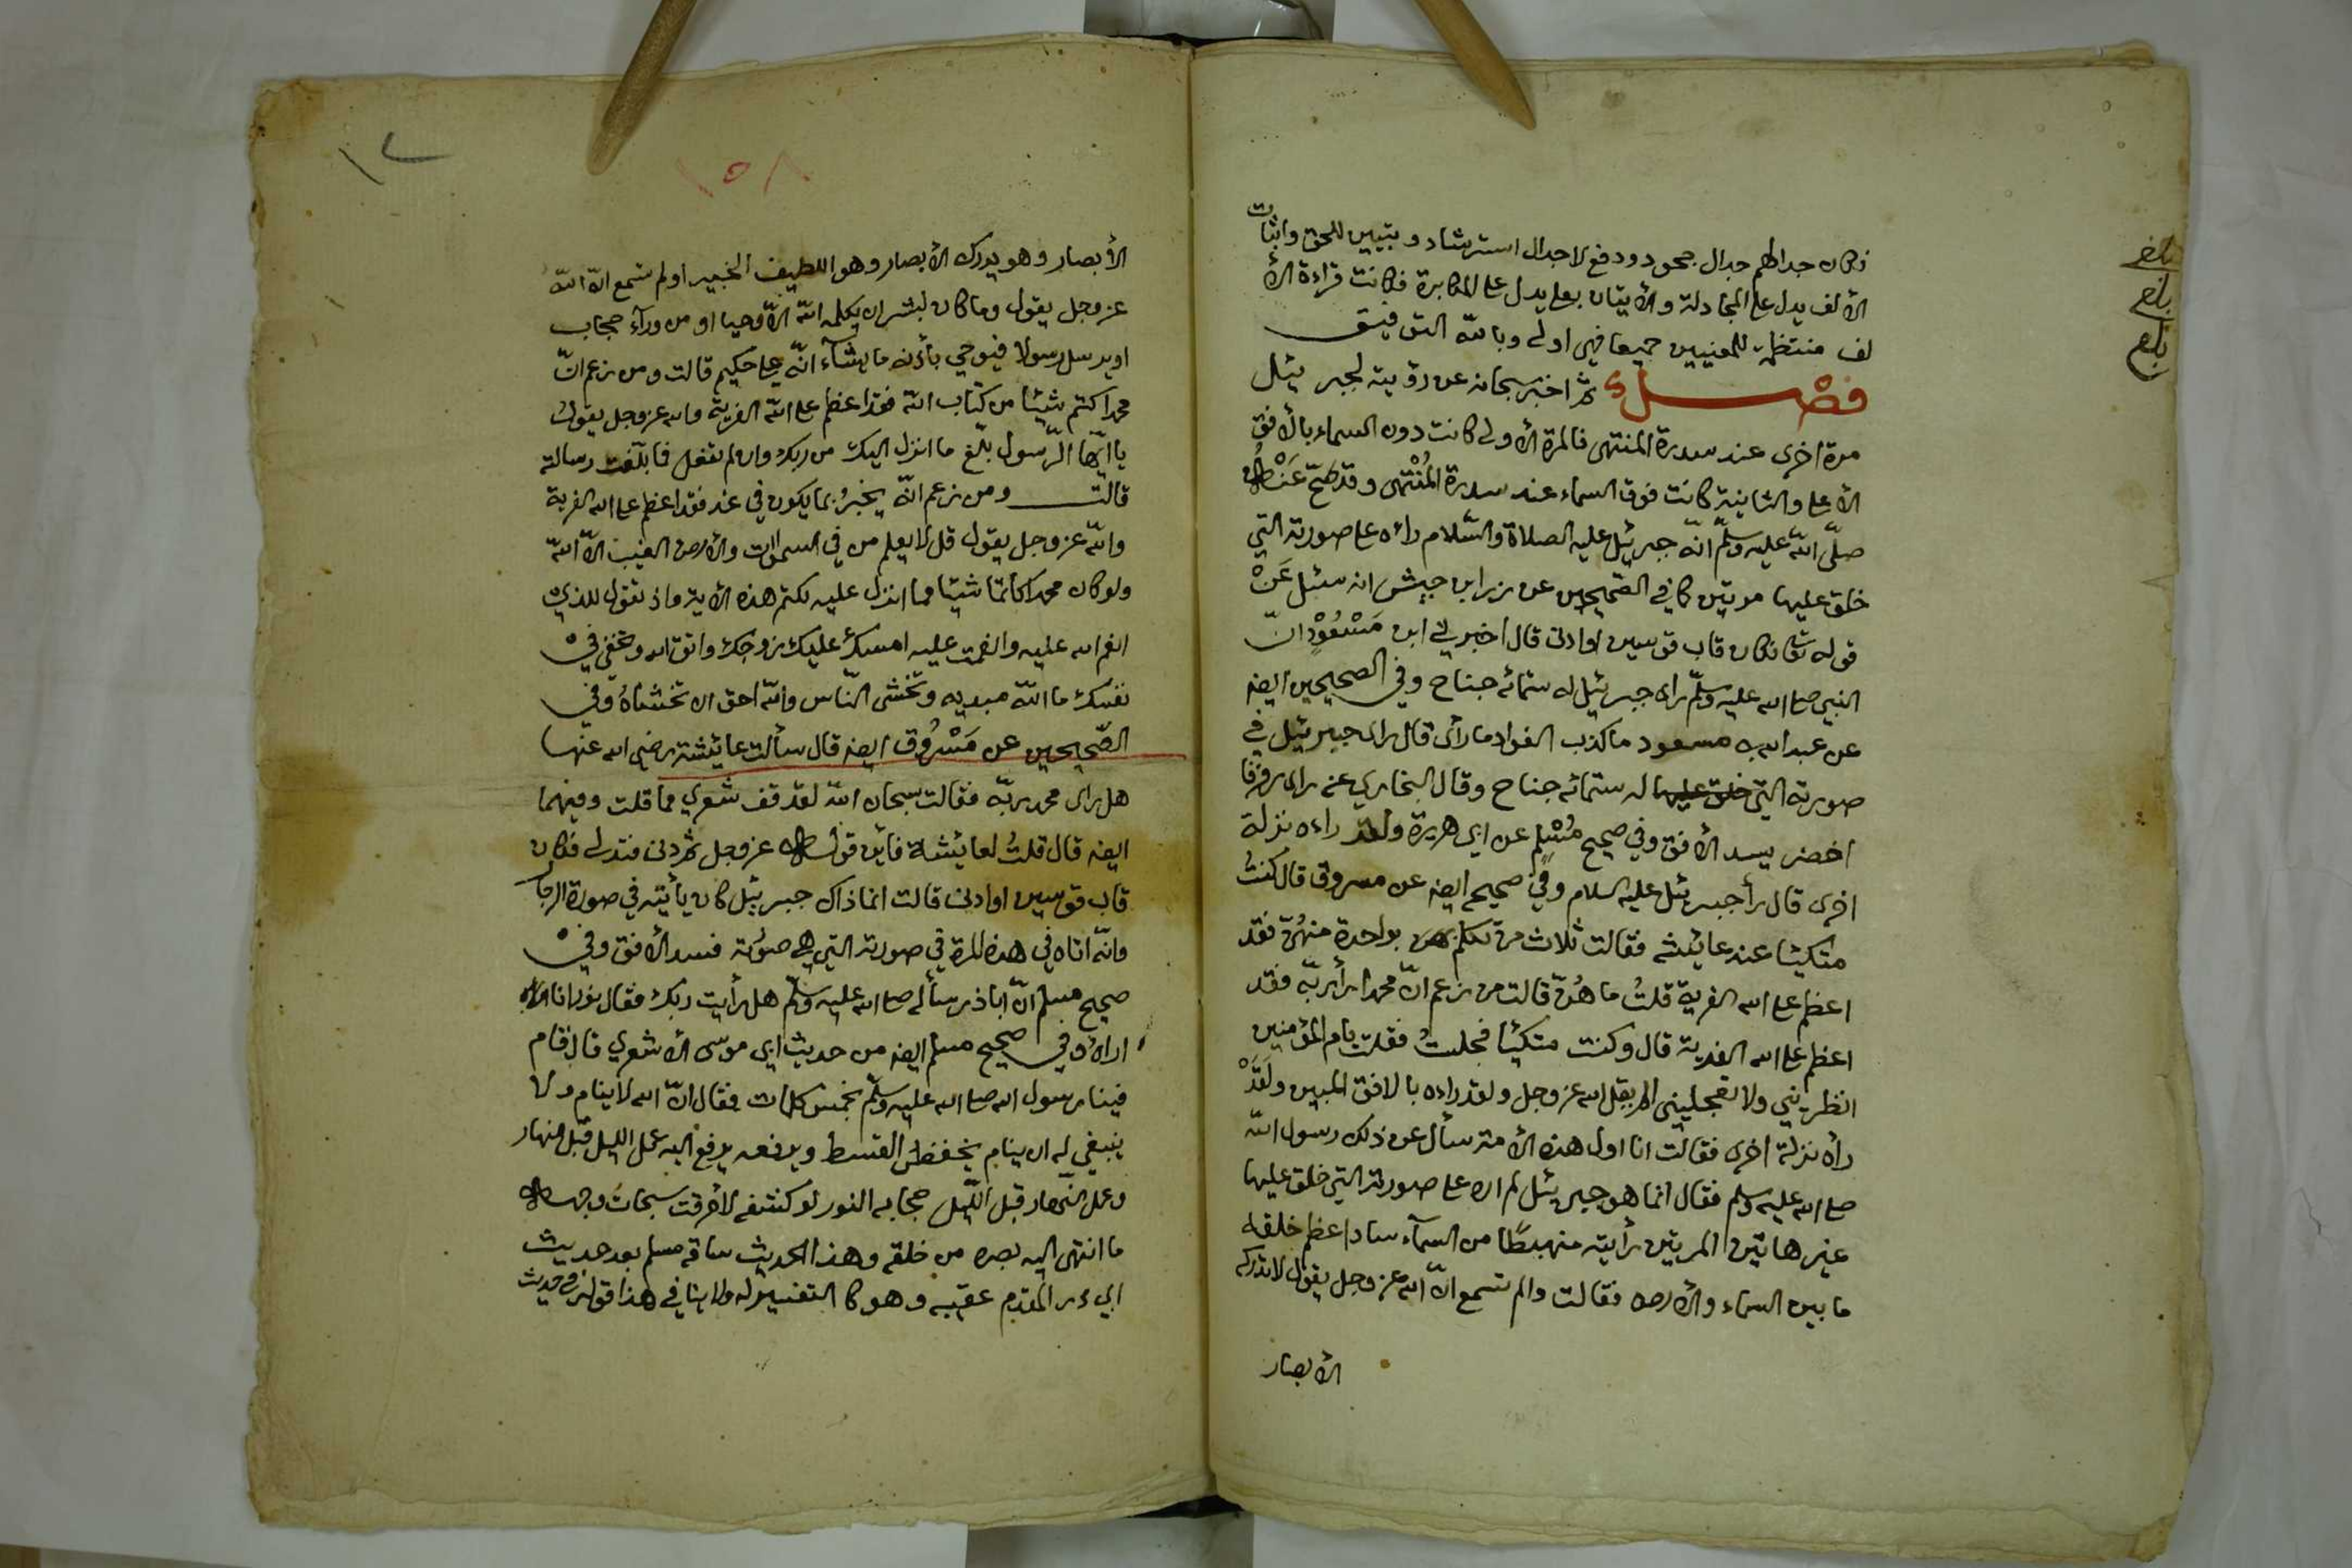 فكان جدالهم جدال جحود ودفع لا جدال استرشاد وتبيين للحق واثبات
الألف يدل على المجادلة والأتيان بعلى يدل على المكابرة فكانت قراءة الأ
لف منتظمة للمعنيين جميعا فهي اولى وبالله التوفيق
فصل ثم اخبر سبحانه عن رؤيته لجبرئيل
مرة اخرى عند سدرة المنتهى فالمرة الأولى كانت دون السماء بالأفق
الأعلى والثانية كانت فوق السماء عند سدرة المُنْتهى وقد صحّ عَنْه
صلّى الله عليه وسلّم انّه جبرئيل عليه الصلاة والسّلام رأه على صورته التي
خلق عليها مرتين كما في الصّحيحين عن زر ابن حبيش انه سئل عَنْ
قوله تعا فكان قاب قوسين او ادنى قال اخبرني ابن مَسْعُوْدٍ انّ
النبي صلى الله عليه وسلّم راى جبرئيل له ستمائه جناح وفي الصحيحين ايضه
عن عبد الله به مسعود ما كذب الفواد ما رأى قال راى جبرئيل في
صورته التي خلق عليها له ستمائه جناح وقال البخاري عنه راى رفرفا
اخضر يسد الأفق وفي صحيح مُسْلِم عن ابي هريرة ولقد راءه نزلة
اخرى قال رأ جبرئيل عليه السلام وفي صحيح ايضه عن مسروق قال كنتُ
متكئا عند عائشه فقالت ثلاث من تكلم بواحدة منهُنّ فقد
اعظم على الله الفرية قلتُ ما هُنّ قالت من زعم انّ محمدا رأ ربّه فقد
اعظم على الله الفرية قال وكنت متكئا فجلستُ فقلت يام المؤمنين
انظريني ولا تعجليني الم يقل الله عز وجل ولقد راءه بالافق المبين ولَقَدْ
رأه نزلة اخرى فقالت انا اول هذه الأمة سأل عن ذلك رسول الله
صلى الله عليه وسلم فقال انما هو جبرئيل لم اره على صورته التي خلق عليها
غير هاتين المرتين رأيته منهبطًا من السمآء سادا عظم خلقه
ما بين السماء والأرض فقالت والم تسمع انّ الله عز وجل يقول لا تدركه
الأبصار
بلغ
بلغ
بلغ
١٥٨
الأبصار وهو يدرك الأبصار وهو اللطيف الخبير اولم تسمع انّ الله
عز وجل يقول وما كان لبشر ان يكلمه الله الّا وحيا او من ورآء حجاب
او يرسل رسولا فيوحي بأذنه ما يشآء انّه علي حكيم قالت ومن زعم انّ
محمدا كتم شيئا من كتاب الله فقد اعظم على الله الفرية والله عز وجل يقول
يا ايّها الرّسول بلّغ ما انزل اليك من ربك وان لم تفعل فما بلّغت رسالته
قالت ومن زعم انّه يخبرُ بما يكون في غد فقد اعظم على الله الفرية
والله عز وجل يقول قل لا يعلم من في السموات والأرض الغيب الّا الله
ولو كان محمد كاتما شيئا مما انزل عليه لكتم هذه الأية واذ تقول للذي
انعم الله عليه وانعمت عليه امسك عليك زوجك واتق الله وتخفي في
نفسك ما الله مبديه وتخشى النّاس والله احق ان تخشاهُ وفي
الصّحيحين عن مَسْرُوق ايضه قال سألت عائيشة رضي الله عنها
هل راى محمد ربّه فقالت سبحان الله لقد قف شعري مما قلت وفيهما
ايضه قال قلتُ لعائيشة فاين قوله عز وجل ثم دنى فتدلى فكان
قاب قوسين او ادنى قالت انما ذاك جبرئيل كان يأتيه في صورة الرجا
وانّه اتاه في هذه المرة في صورته التي هي صوُته فسد الأفق وفي
صحيح مسلم انّ اباذر سأله صلى الله عليه وسلّم هل رأيت ربك فقال نور انا
اراهُ وفي صحيح مسلم ايضه من حديث ابي موسى الأشعري قال قام
فينا رسول الله صلى الله عليه وسلّم بخمس كلمات فقال انّ الله لا ينام ولا
ينبغي له ان ينام يخفض القسط ويرفعه يرفع اليه عمل الليل قبل النهار
وعمل النّهار قبل اللّيل حجابه النور لو كشفه لأحرقت سبحات وجهه
ما انتهى اليه بصره من خلقه وهذا الحديث ساقه مسلم بعد حديث
ابي ذر المقدم عقيبه وهو كا التفسير له ولا ينافي هذا قوله في حديث